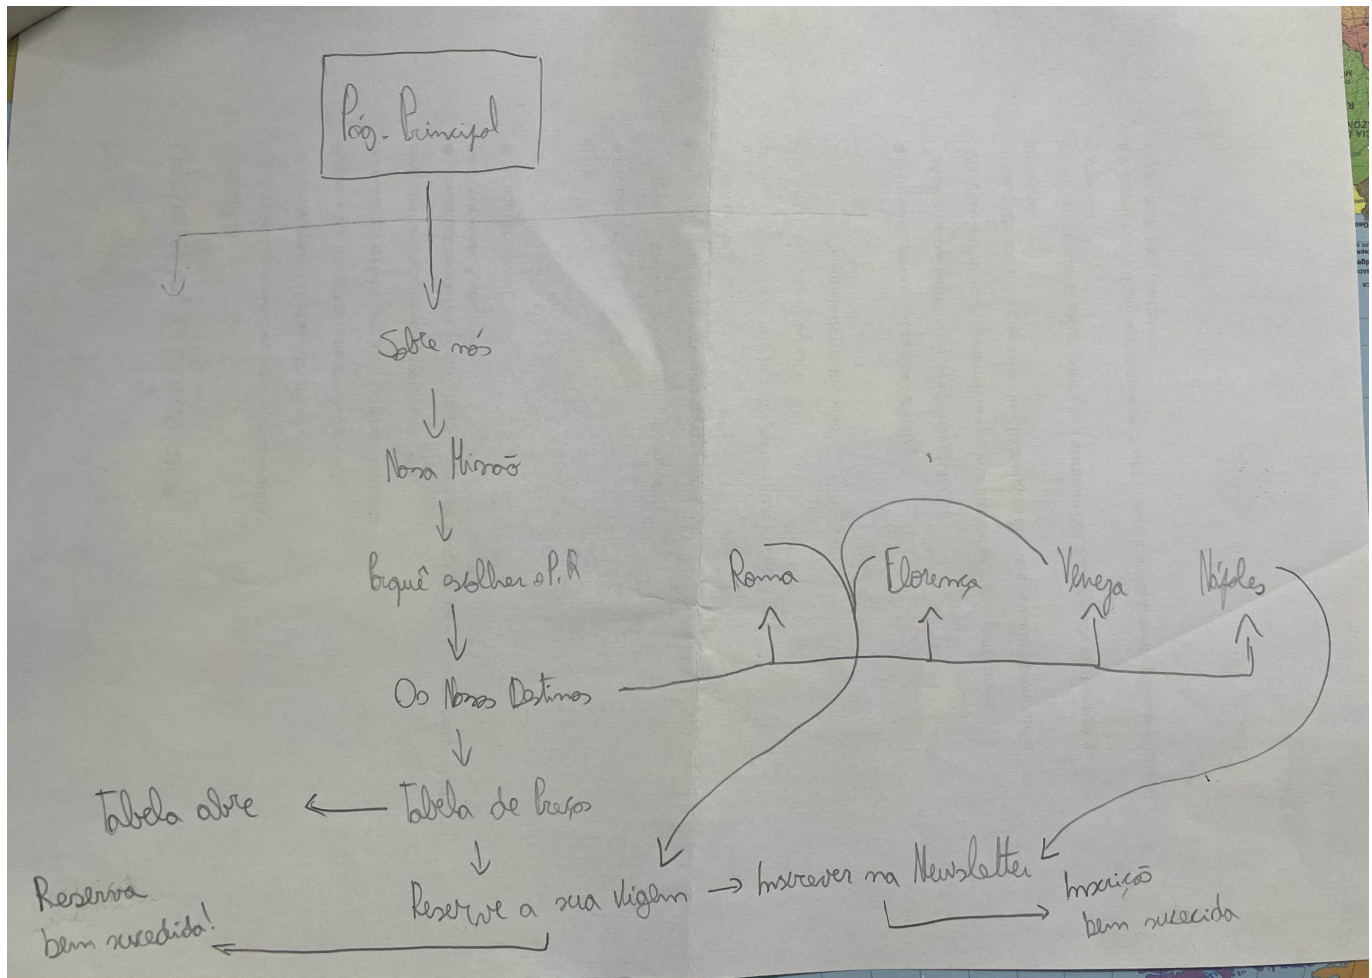 Pág. Principal
Sobre nós
Nossa Missão
Porquê escolher o P.R
Roma
Florença
Veneza
Nápoles
Os Nossos Destinos
Tabela abre
Tabela de Preços
Reserve a sua Vigem
Inscrever na Newsletter
Inscrição
bem sucecida
Reserva
bem sucedida!